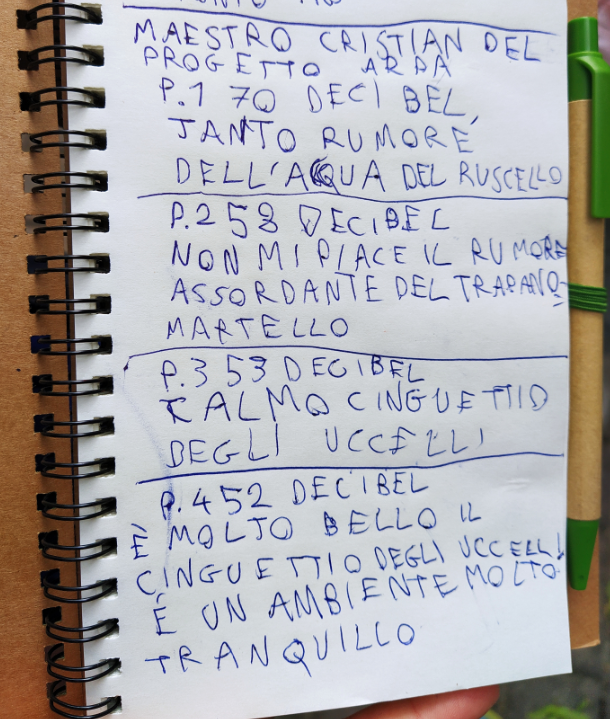 MAESTRO CRISTIAN DEL
PROGETTO ARPA
P.1 70 DECIBEL,
TANTO RUMORE
DELL'ACQUA DEL RUSCELLO
P.2 58 DECIBEL
NON MI PIACE IL RUMORE
ASSORDANTE DEL TRAPANO-
MARTELLO
P.3 53 DECIBEL
CALMO CINGUETTIO
DEGLI UCCELLI
P.4 52 DECIBEL
È MOLTO BELLO IL
CINGUETTIO DEGLI UCCELLI
É UN AMBIENTE MOLTO
TRANQUILLO